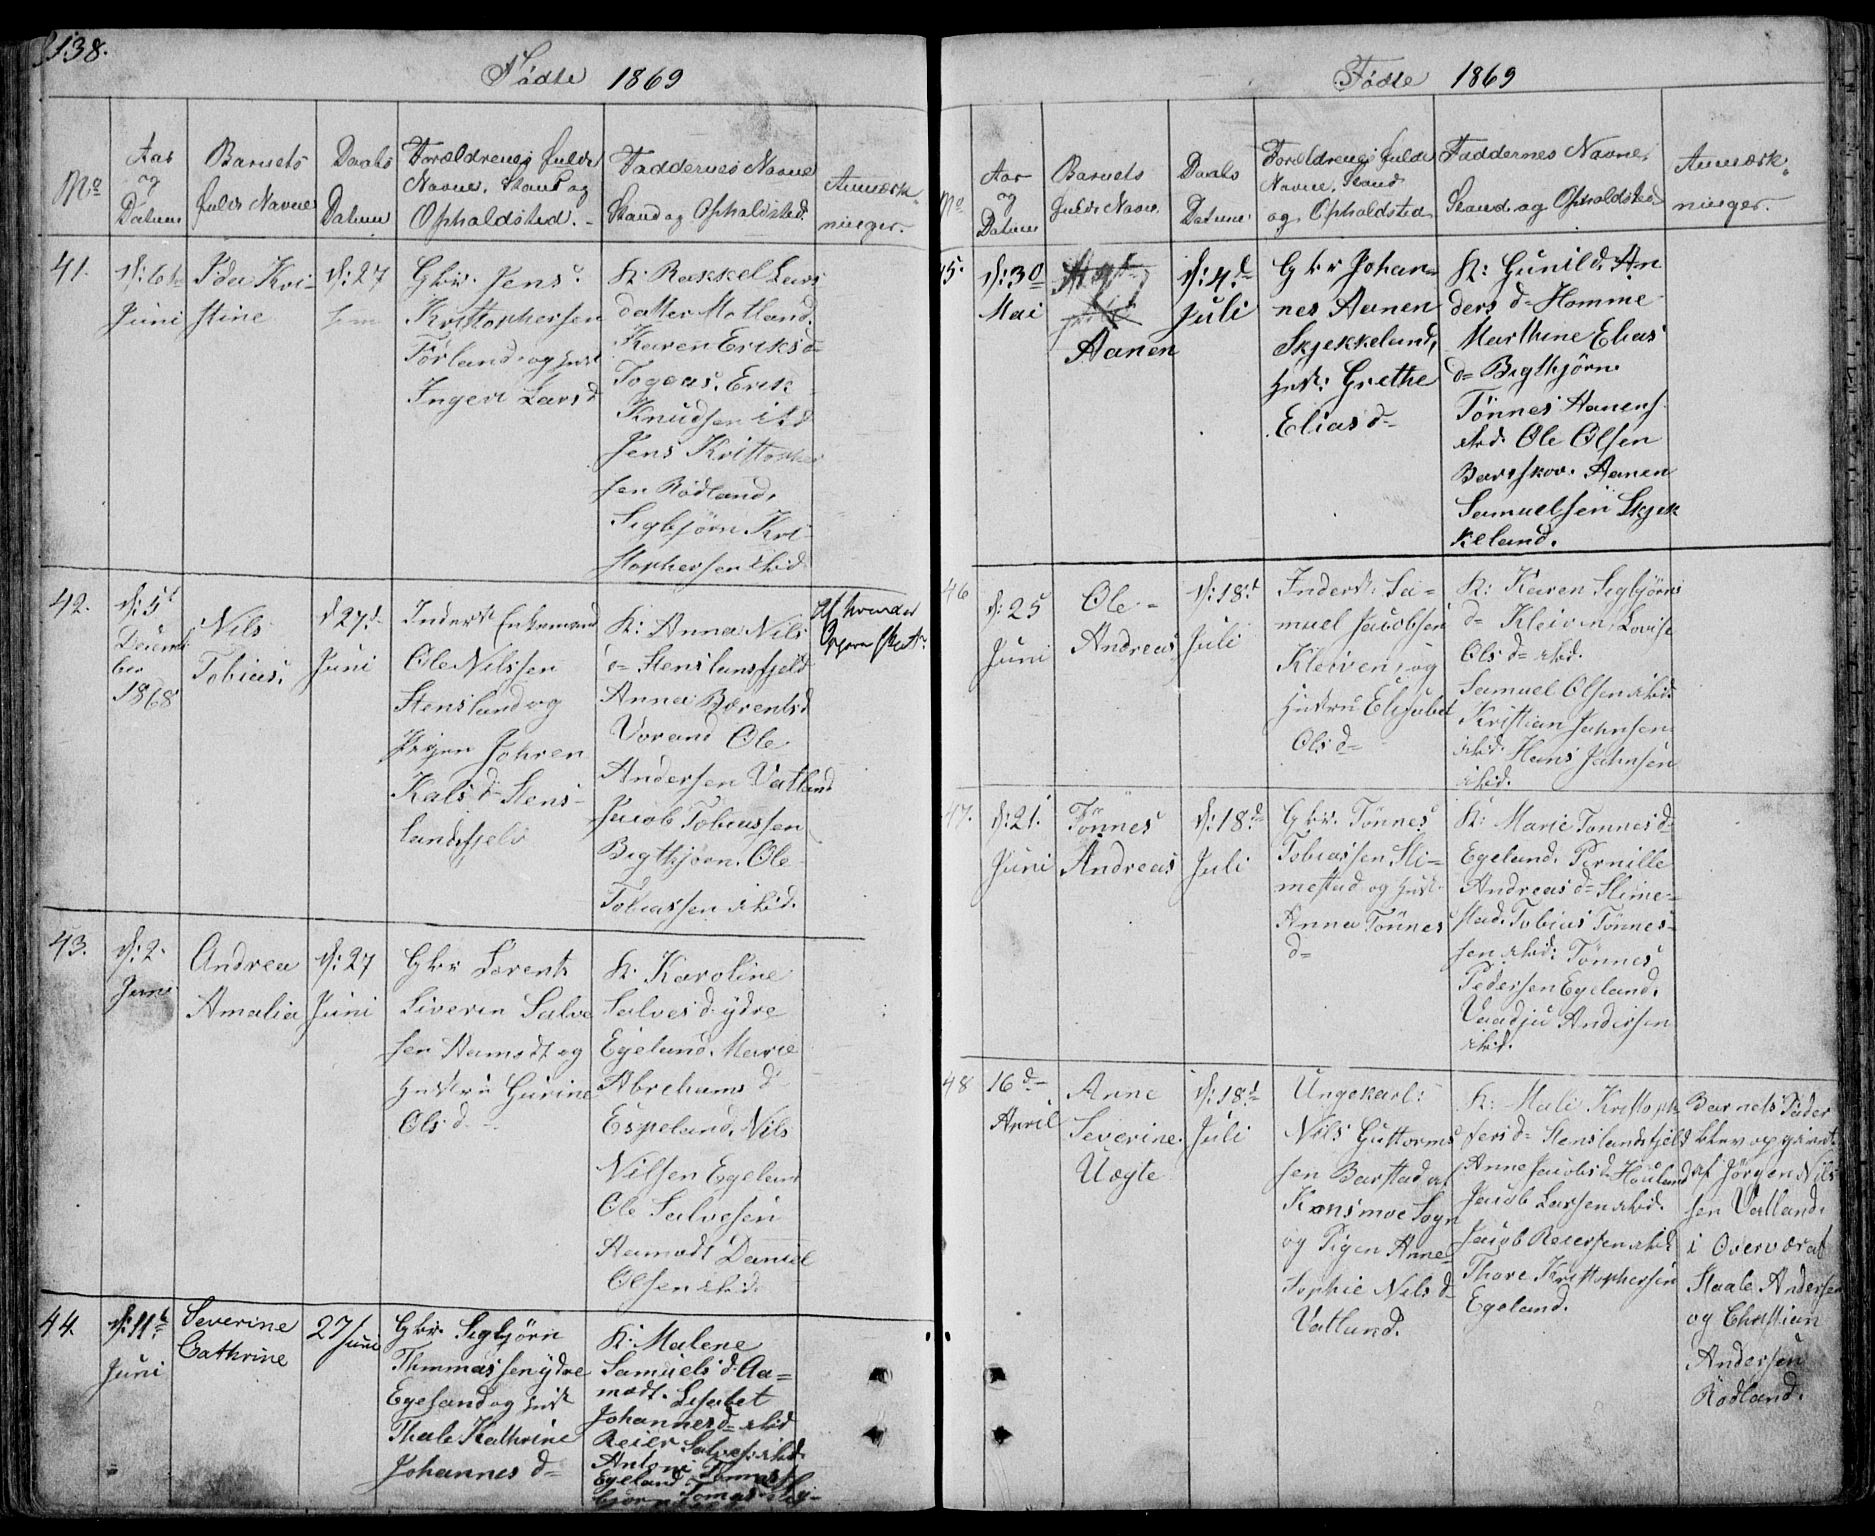 138.
Födte 1869
No
Aar
og
Datum
Barnets
fulde Navne
Daabs
Datum
Forældrenes fulde
Navne, Stand og
Opholdsted.
Faddernes Navne
Stand og Opholdsted.
Anmærk-
ninger.
41.
d: 6te
Juni
Ida Kri-
stine
d: 27
Gbr. Jens
Kristophersen
Förland og Hust
Ingeri Larsd
K: Rakkel Lars
datter Motland
Karen Eriksd=
Erik
Knudsen
Jens Kristopher
sen Rödland,
Sigbjörn Kri-
stophersen
42.
d: 5t
Decem
ber
1868
Nils
Tobias.
d 27d
Juni
Inderst Enkemand
Ole Nilssen
Stensland og
Pigen
d= Stens-
landsfjeld
K: Anna Nils
d= Stenslansfjeld
Anna Bærentsd
Vorand Ole
Andersen Vatland
Jacob Tobiassen
Bigtkjörn. Ole
Tobiassen
43.
d: 2.
Juni
Andrea
Amalia
d: 27
Juni
Gbr Lorents
Siverin Salve
sen Aamodt og
Hustru Gurine
Ols d.
K. Karoline
Salves d. ydre
Egeland. Marie
Abrehams d
Espeland, Nils
Nilsen Egeland
Ole Salvesen
Aamodt Daniel
Olsen
44.
d: 11te
Juni
Severine
Cathrine
27 Juni
Gbr. Sigbjörn
Thommassen ydre
Egeland og Hust
Thale Kathrine
Johannes d=
K: Malene
Samuels d. Aa=
modt. Lisabet
Johannesd=
Reier
Antoni
Egeland
Födte 1869
No
Aar
og
Datum
Barnets
fulde Navne
Daabs
Datum
Forældrenes fulde
Navne, Stand
og Opholdsted
Faddernes Navne,
Stand og Opholdsted
Anmærk-
ninger.
45.
d: 30
Mai
Aanen
d: 4d
Juli
Gbr Johan=
nes Aanen
Skjekkeland,
Hust: Grethe
Elias d=
K: Gunild An
ders d= Homme
Marthine Elias
d= Bigtkjörn.
Tönnes Aanens
Ole Olsen
Barskor. Aanen
Samuelsen Skjek
keland.
46
d: 25
Juni
Ole
Andreas
d: 18d
Juli
Inderst. Sa=
muel Jacobsen
Kleiven, og
Hustru Elisabet
Ols d=
K: Karen Sigbjörns
d= Kleiven, Lovise
Ols d=
Samuel Olsen
Kristian Jahnsen
Hans Jahnsen
47.
d: 21.
Juni
Tönnes
Andreas
d: 18d
Juli
Gbr. Tönnes
Tobiassen Sli=
mestad og Hust.
Anna Tönnes
d=
K: Marie Tönnes d=
Egeland. Pernille
Andreas d= Slime=
stad. Tobias Tönnes-
sen Tönnes
Pedersen Egeland.
Andersen
48
16d
April
Anne
Severine
Uegte
d: 18d
Juli
Ungekarl:
Nils Guttorms
sen Barstad af
Konsmoe Sogn
og Pigen Anne
Sophie Nils d=
Vatland.
K: Mali Kristoph
fersd= Stenslandsfjeld
Anne Jacobsd= Houland
Jacob Larsen
Jacob Reiersen
Thore Kristophersen
Egeland.
Barnets Fader
blev opgivet
af Jörgen Nils
sen Vatland
i Overvær af
Staale Andersen
og Christian
Andersen
Rödland.